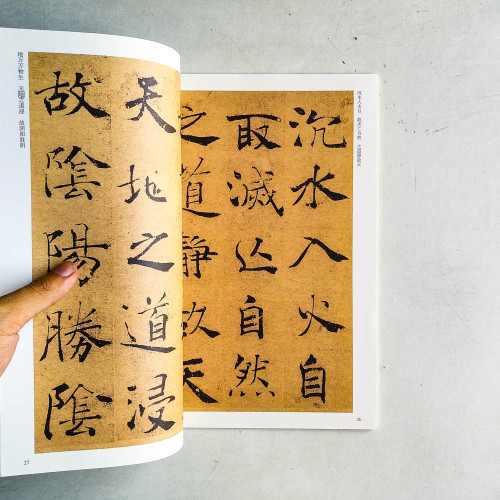 沉水入火自
取滅亾自然
之道靜故天
26
天地之道浸
故陰陽勝陰
27